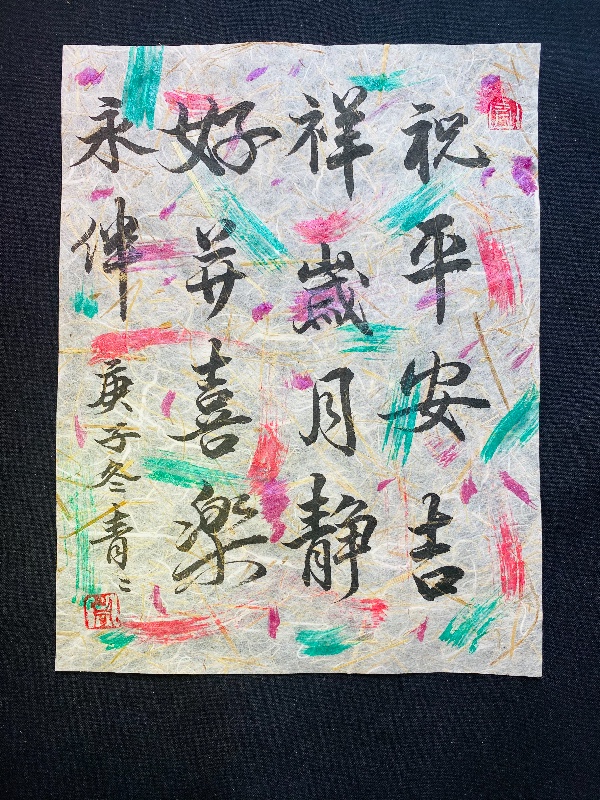 祝平安吉
祥歲月静
好并喜樂
永伴
庚子冬青〻